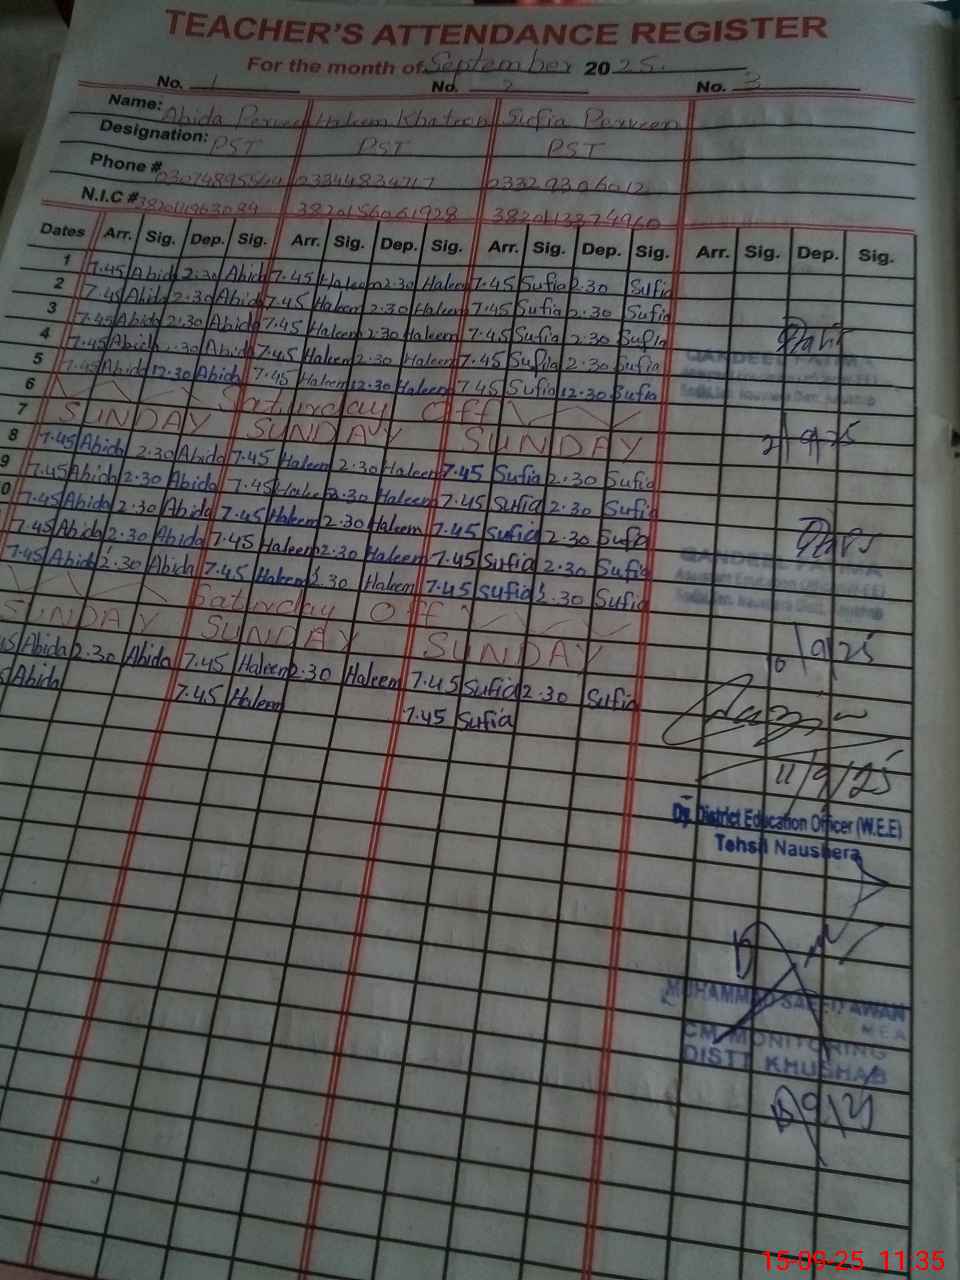 TEACHER'S ATTENDANCE REGISTER
For the month of September 2025
No. 1 No. 2 No. 3
Name: Abida Perveen Haleem Khatoon Sufia Perveen
Designation: PST PST PST
Phone # 03344834717
N.I.C # 3820156061928 3820113874960
Dates Arr. Sig. Dep. Sig. Arr. Sig. Dep. Sig. Arr. Sig. Dep. Sig. Arr. Sig. Dep. Sig.
1 7.45 Abida 2.30 Abida 7.45 Haleem 2.30 Haleem 7.45 Sufia 2.30 Sufia
2 7.45 Abida 2.30 Abida 7.45 Haleem 2.30 Haleem 7.45 Sufia 2.30 Sufia
3 7.45 Abida 2.30 Abida 7.45 Haleem 2.30 Haleem 7.45 Sufia 2.30 Sufia
4 7.45 Abida 2.30 Abida 7.45 Haleem 2.30 Haleem 7.45 Sufia 2.30 Sufia
5 7.45 Abida 12.30 Abida 7.45 Haleem 12.30 Haleem 7.45 Sufia 12.30 Sufia
6 Saturday Off
7 SUNDAY SUNDAY SUNDAY
8 7.45 Abida 2.30 Abida 7.45 Haleem 2.30 Haleem 7.45 Sufia 2.30 Sufia
9 7.45 Abida 2.30 Abida 7.45 Haleem 2.30 Haleem 7.45 Sufia 2.30 Sufia
0 7.45 Abida 2.30 Abida 7.45 Haleem 2.30 Haleem 7.45 Sufia 2.30 Sufia
7.45 Abida 2.30 Abida 7.45 Haleem 2.30 Haleem 7.45 Sufia 2.30 Sufia
7.45 Abida 2.30 Abida 7.45 Haleem 2.30 Haleem 7.45 Sufia 2.30 Sufia
Saturday Off
SUNDAY SUNDAY SUNDAY
45 Abida 2.30 Abida 7.45 Haleem 2.30 Haleem 7.45 Sufia 2.30 Sufia
5 Abida 7.45 Haleem 7.45 Sufia
QANDEEL FATIMA
2/9/25
QANDEEL FATIMA
10/9/25
11/9/25
Dy. District Education Officer (W.E.E)
Tehsil Naushera
MUHAMMAD SAEED AWAN
MEA
CM MONITORING
DISTT KHUSHAB
15/9/25
15-09-25 11:35